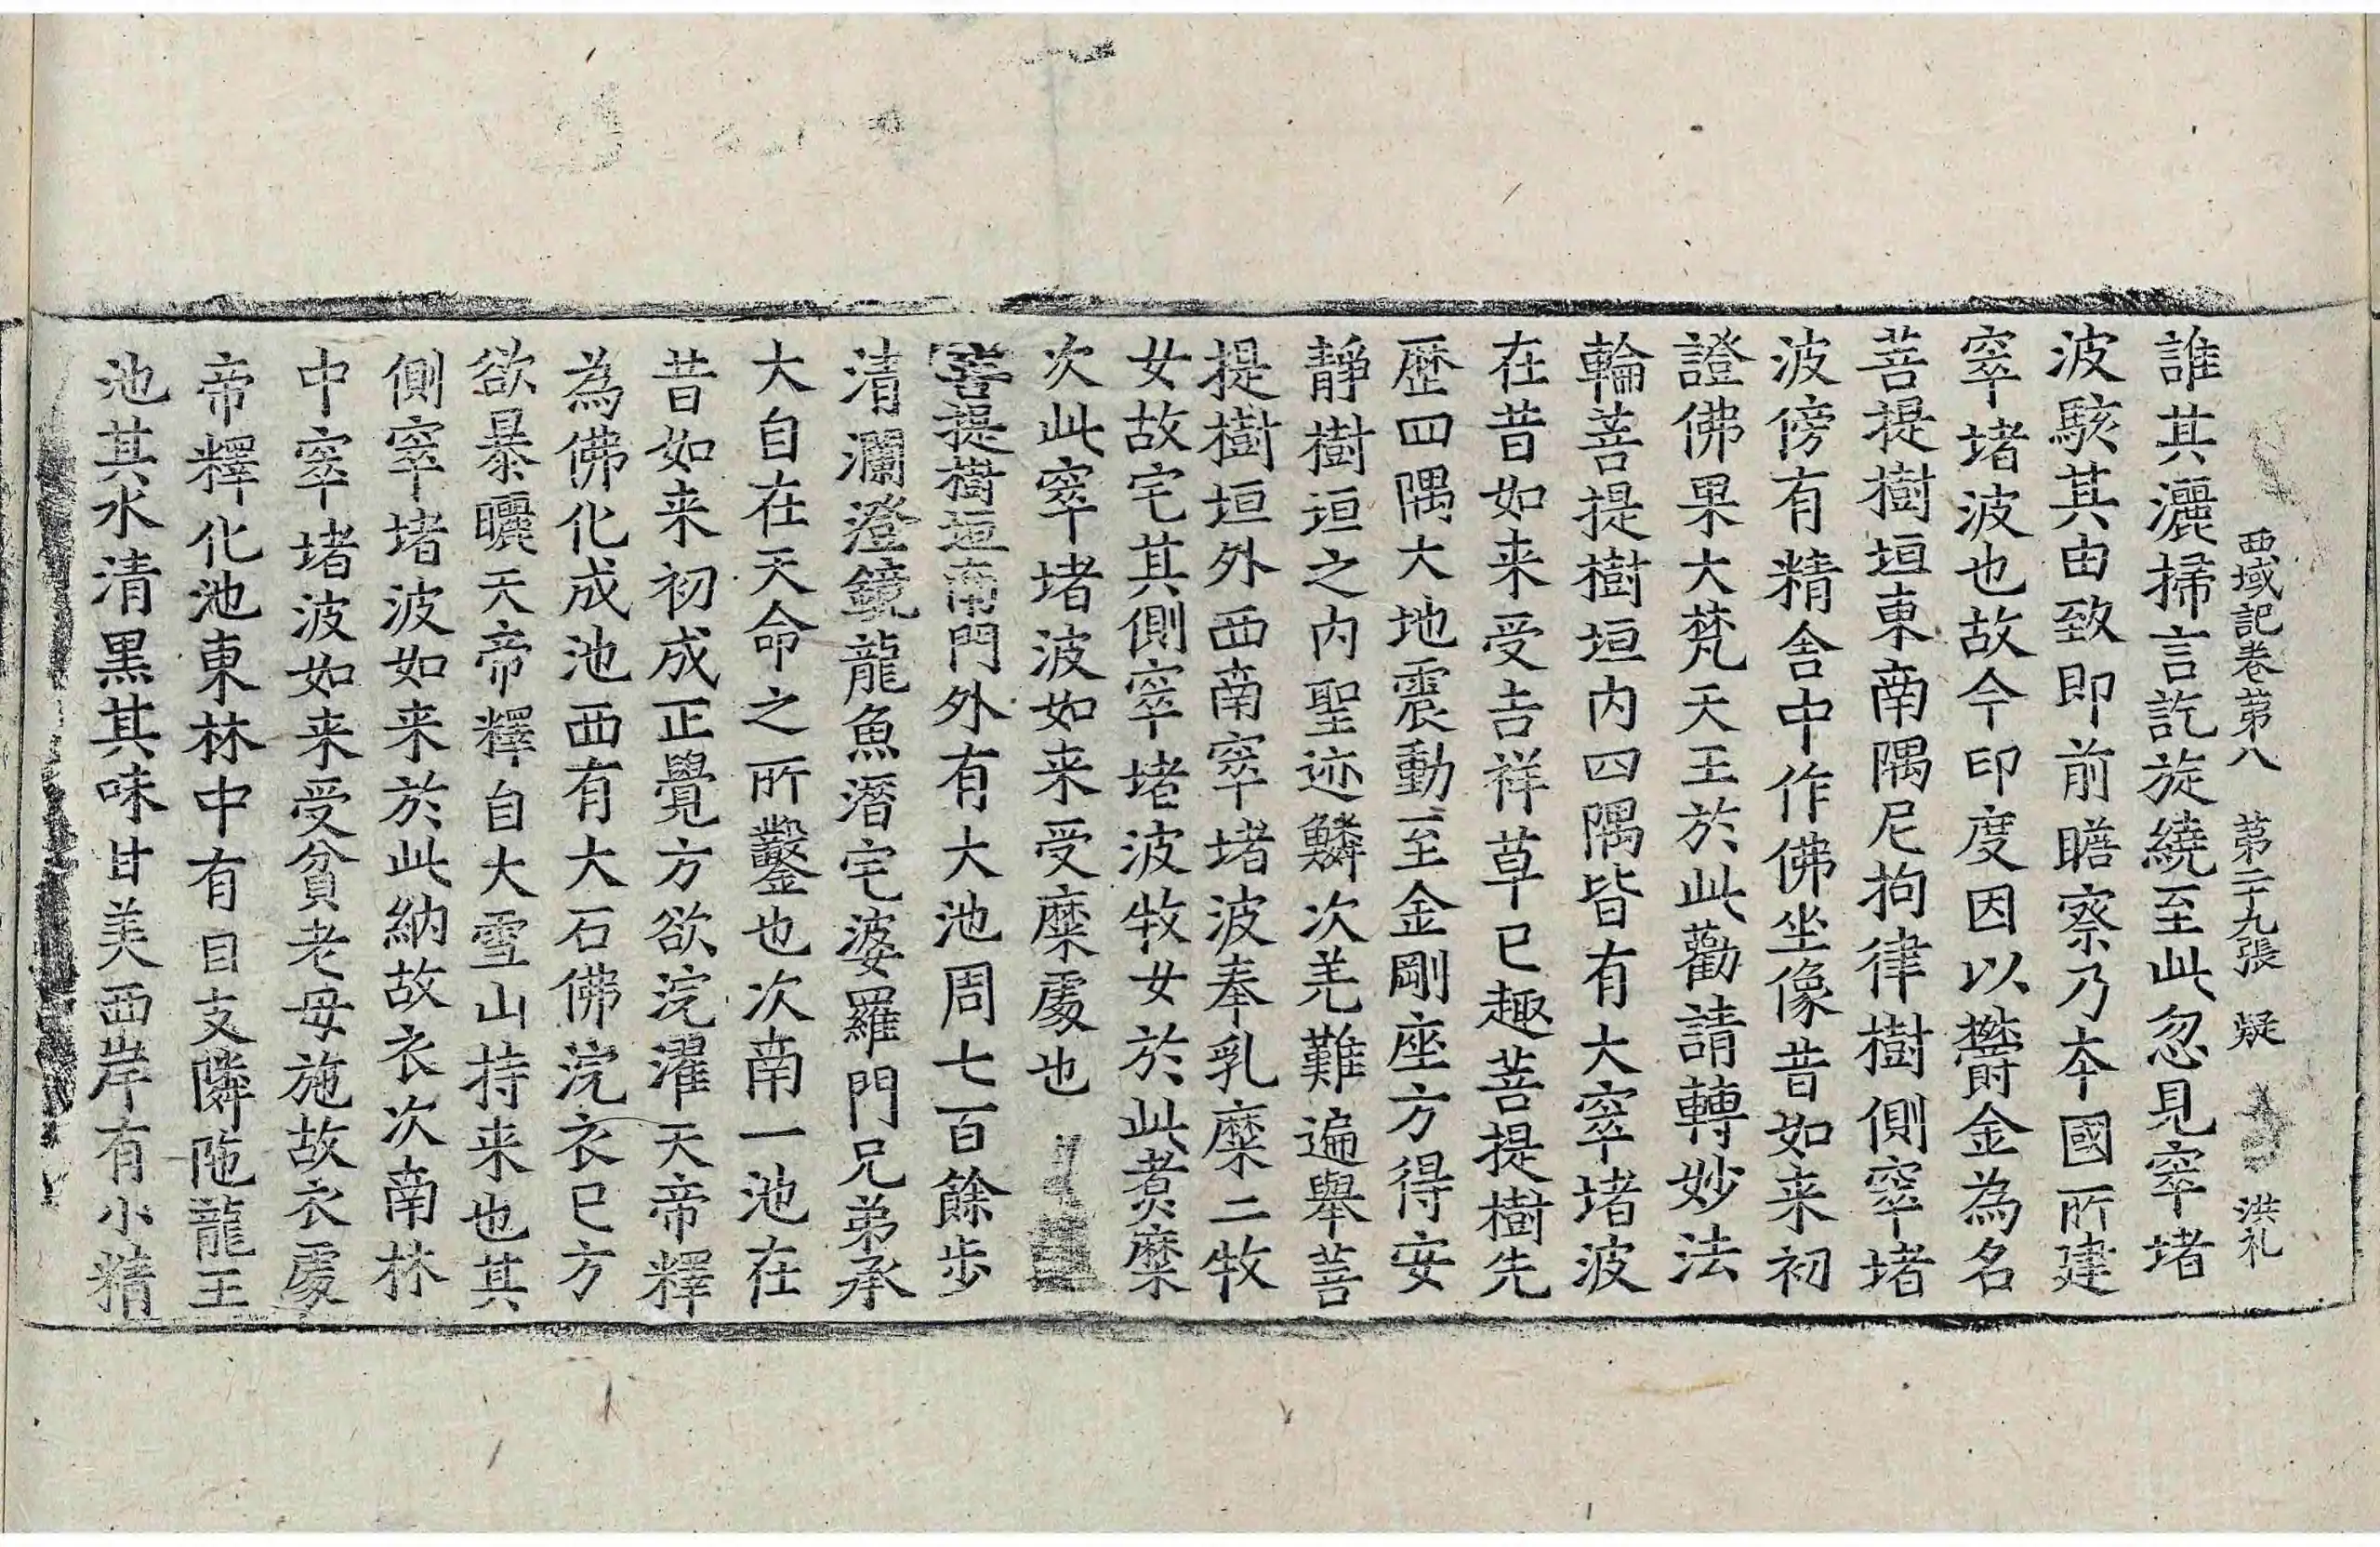 西域記卷第八　第二十九張　疑　洪礼
誰其灑掃言訖旋繞至此忽見窣堵
波駭其由致即前瞻察乃本國所建
窣堵波也故今印度因以欝金為名
菩提樹垣東南隅尼拘律樹側窣堵
波傍有精舍中作佛坐像昔如来初
證佛果大梵天王於此勸請轉妙法
輪菩提樹垣内四隅皆有大窣堵波
在昔如来受吉祥草已趣菩提樹先
歷四隅大地震動至金剛座方得安
靜樹垣之内聖迹鱗次羌難遍舉菩
提樹垣外西南窣堵波奉乳糜二牧
女故宅其側窣堵波牧女於此煮糜
次此窣堵波如来受糜處也
菩提樹垣南門外有大池周七百餘步
清瀾澄鏡龍魚潛宅婆羅門兄弟承
大自在天命之所鑿也次南一池在
昔如来初成正覺方欲浣濯天帝釋
為佛化成池西有大石佛浣衣已方
欲暴曬天帝釋自大雪山持来也其
側窣堵波如来於此納故衣次南林
中窣堵波如来受貧老母施故衣處
帝釋化池東林中有目支隣陁龍王
池其水清黑其味甘美西岸有小精